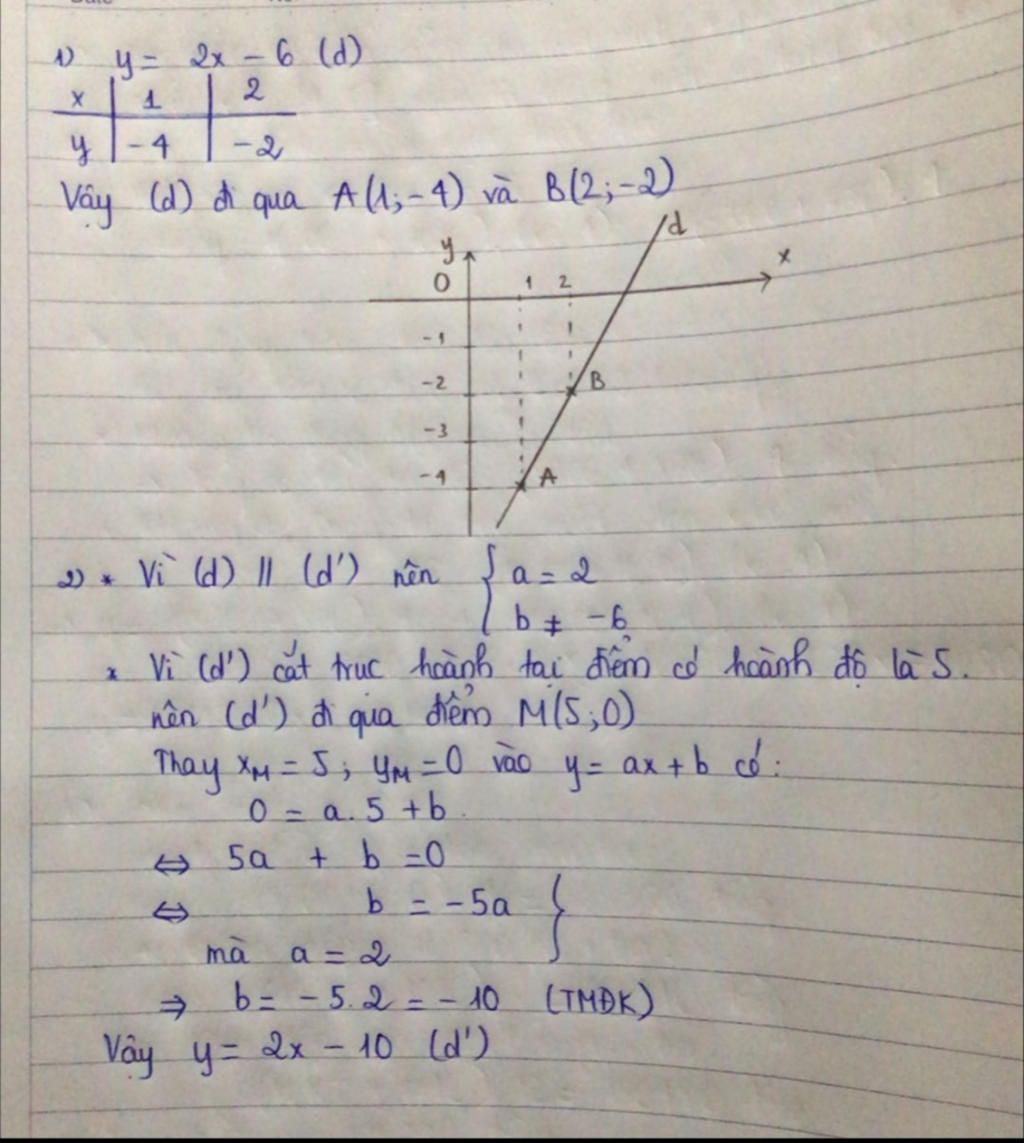 1) y = 2x - 6 (d)
x | 1 | 2
y | -4 | -2
Vậy (d) đi qua A(1;-4) và B(2;-2)
d
y
x
O 1 2
-1
-2 B
-3
-4 A
2) * Vì (d) // (d') nên { a = 2
b ≠ -6
* Vì (d') cắt trục hoành tại điểm có hoành độ là 5.
nên (d') đi qua điểm M(5;0)
Thay xM = 5; yM = 0 vào y = ax + b có:
0 = a.5 + b.
⇔ 5a + b = 0
⇔ b = -5a }
mà a = 2
⇒ b = -5.2 = -10 (TMĐK)
Vậy y = 2x - 10 (d')